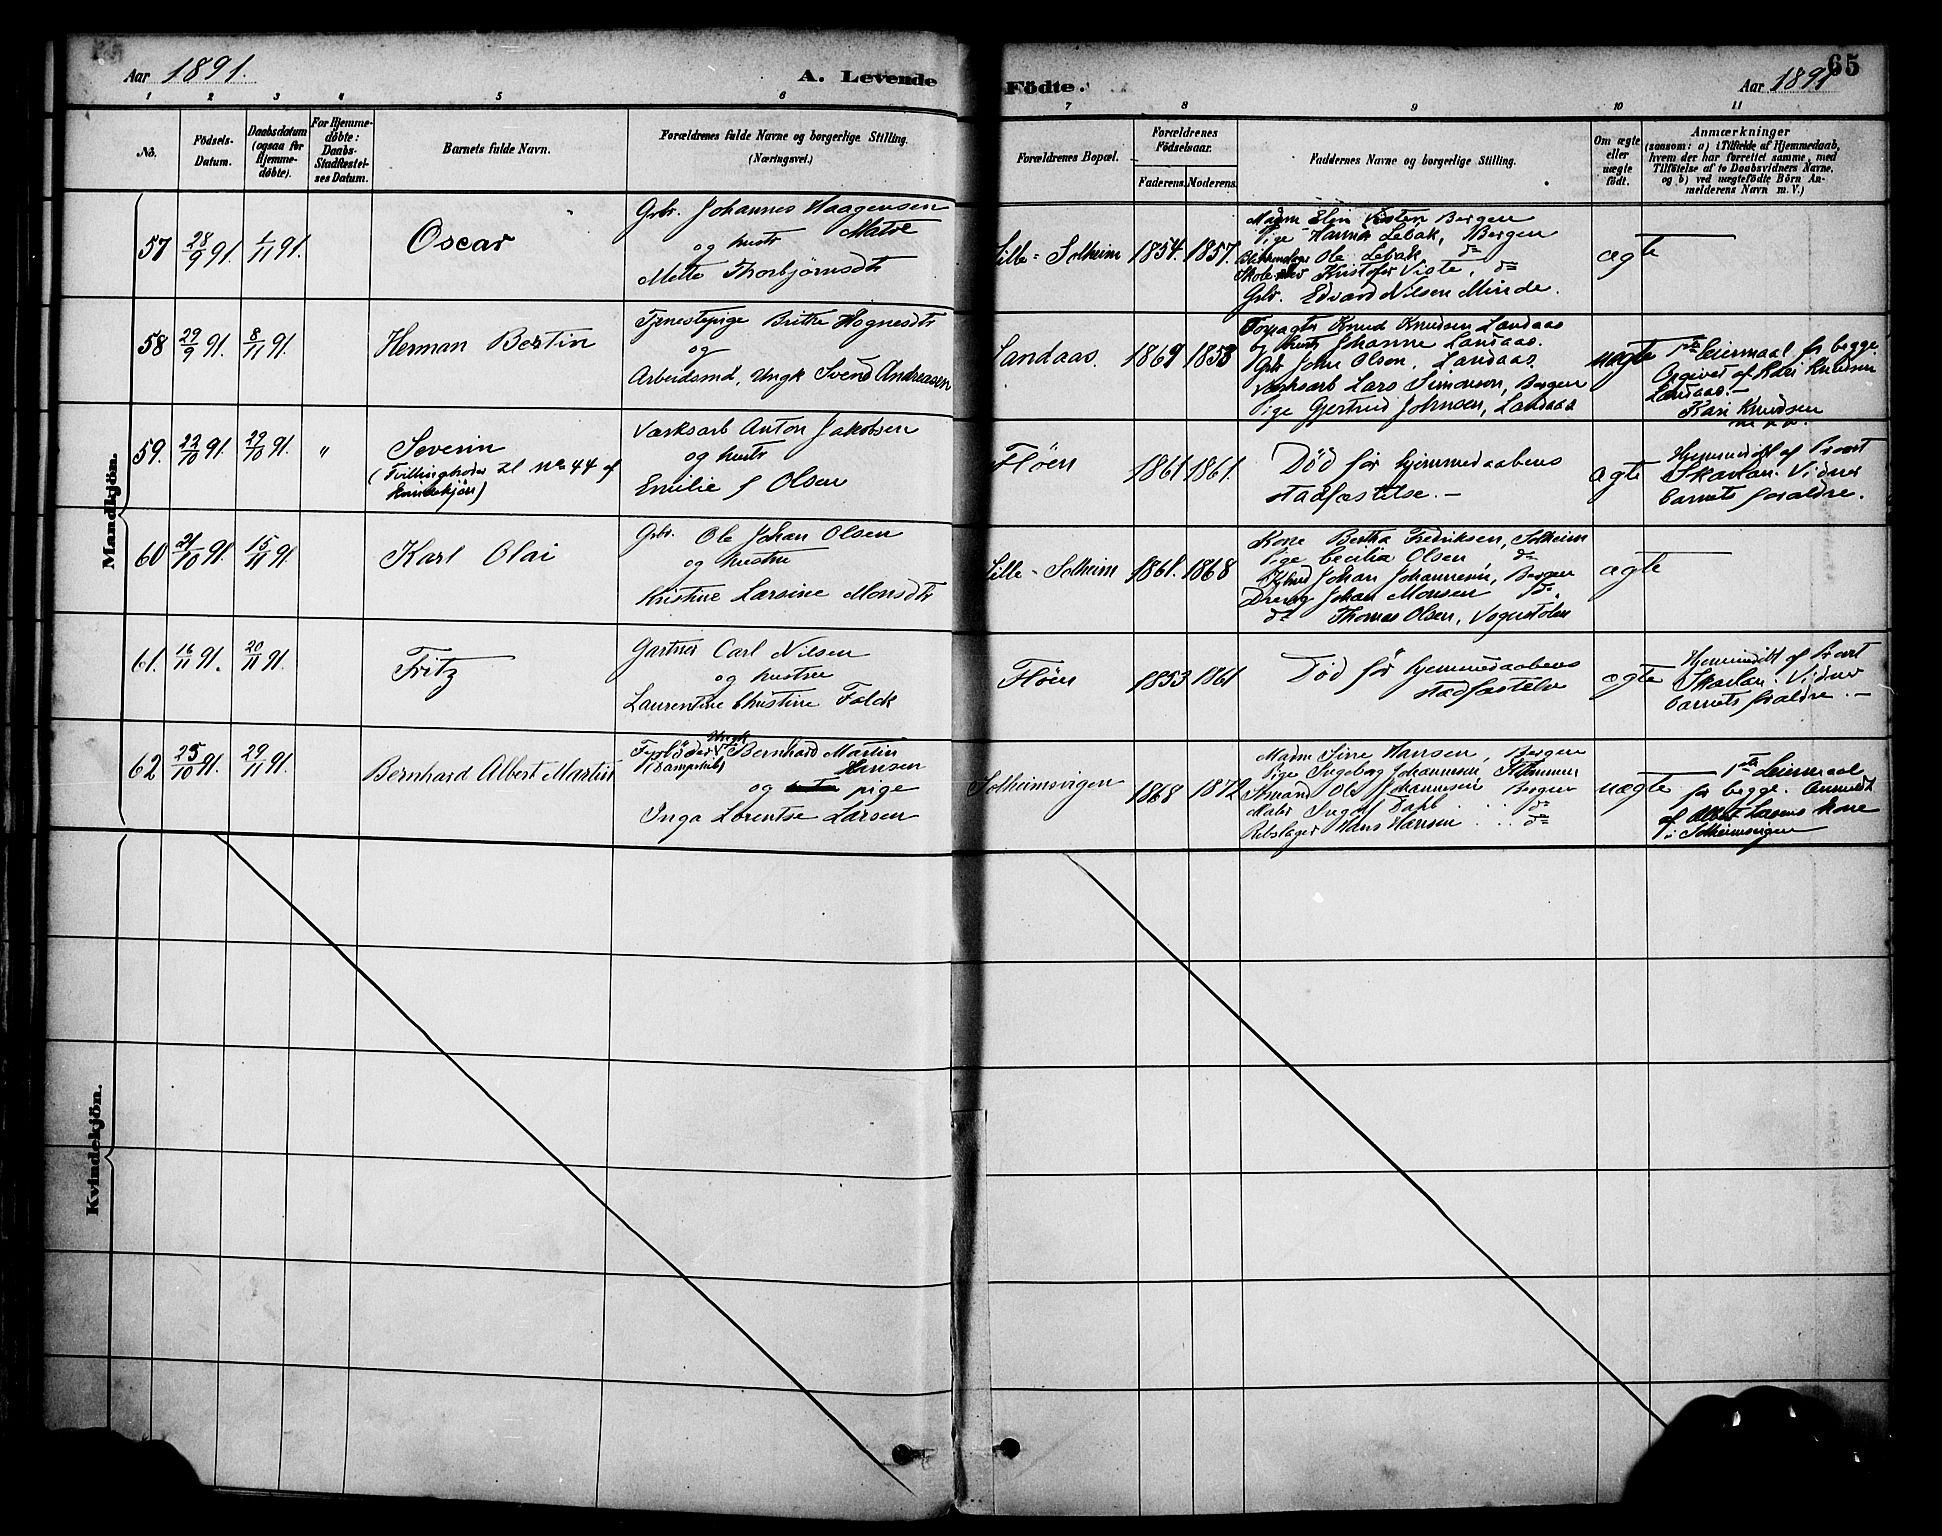 Aar 1891.
A. Levende
Födte.
Aar 1891
65
1 2 3 4 5 6 7 8 9 10 11
No.
Födsels-Datum.
Daabsdatum (ogsaa for Hjemmedöbte).
For Hjemmedöbte: Daabs-Stadfæstelses Datum.
Barnets fulde Navn.
Forældrenes fulde Navne og borgerlige Stilling.
(Næringsvei.)
Forældrenes Bopæl.
Forældrenes Födselsaar.
Faderens. Moderens.
Faddernes Navne og borgerlige Stilling.
Om ægte eller uægte födt.
Anmærkninger
(saasom: a) i Tilfælde af Hjemmedaab,
hvem der har forrettet samme, med
Tilföielse af to Daabsvidners Navne,
og b) ved uægtefödte Börn Anmelderens Navn m. V.)
Mandkjön.
57 28/9 91. 1/11 91.
Oscar
Gbr. Johannes Haagensen
Matre
og hustr
Mette Thorbjörnsdtr
Lille-Solheim 1854. 1857.
Madm Elin Bergen
Pige Hanna Lebak, Bergen
Ole Lebak do
Kristofer Viste, do
Gbr. Edvard Nilsen Minde.
ægte
58 29/9 91. 8/11 91.
Herman Bertin
Tjenestepige Brithe Hognesdtr
og
Arbeidsmd, Ungk Svend Andreassen
Landaas. 1869 1858
Forpagter Knud Knudsen Landaas
og Hustr Johanne Landaas.
Gbr John Olsen, Landaas.
Værksarb Lars Simonsen, Bergen
Pige Gjertrud Johnsen, Landaas
uægte
1ste Leiermaal for begge.
Opgivet af Kari Knudsen
Landaas.-
Kari Knudsen
m. p. p.
59. 22/10 91. 22/10 91. "
Severin
(Tvillingbroder til No 44 af
Kvindekjön)
Værksarb Anton Jakobsen
og hustr
Emilie f Olsen
Flöen 1861 1861.
Död för hjemmedaabens
stadfæstelse.-
ægte
Hjemmedöbt af Provst
Skarlan. Vidner
barnets forældre.
60 21/10 91. 15/11 91.
Karl Olai
Gbr. Ole Johan Olsen
og hustru
Kristine Larsine Monsdtr
Lille-Solheim 1861. 1868
Kone Bertha Fredriksen, Solheim
Pige Cecilia Olsen do
Johan Johannesen, Bergen
Dreng Johan Monsen do.
do Thomas Olsen, Vognstölen
ægte
61. 16/11 91. 20/11 91.
Fritz
Gartner Carl Nilsen
og hustru
Laurentine Christine Falck
Flöen 1853 1861
Död för hjemmedaabens
stadfæstelse
ægte
Hjemmedöbt af Provst
Skarlan. Vidner
barnets forældre.-
62 25/10 91. 29/11 91.
Bernhard Albert Martin
Ungk
Fyrböder Bernhard Martin
(Dampskib) Hansen
og pige
Inga Lorentse Larsen
Solheimsvigen 1868 1872
Madm Sirre Hansen, Bergen
Pige Ingeborg Johannesen,
Ole Johannesen Bergen
Maler Ingolf Dahl do
Rebslager Hans Hansen do
uægte
1ste Leiermaal
for begge. Anmeldt
af Albert Larsens Kone
i Solheimsvigen
Kvindekjön.